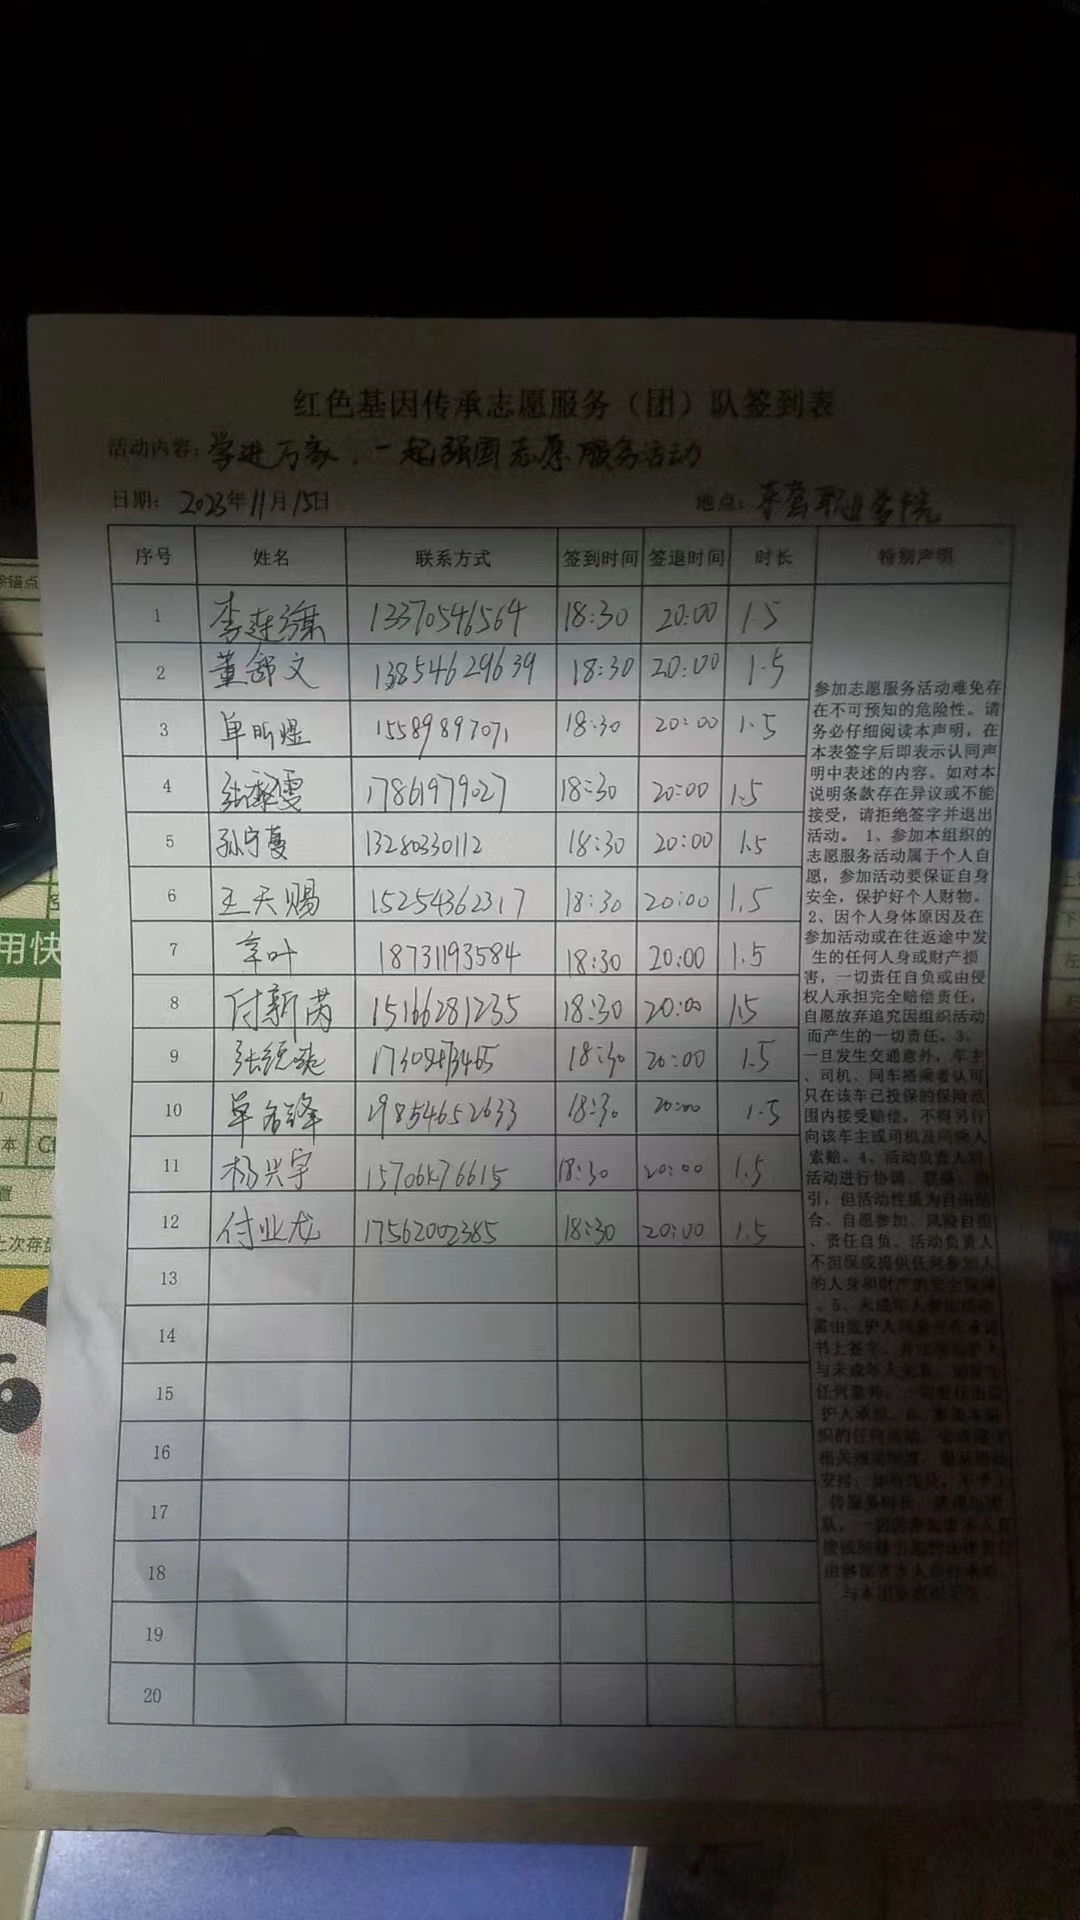 红色基因传承志愿服务（团）队签到表
活动内容：学进万家，一起强国志愿服务活动
日期：2023年11月15日 地点：东营职业学院
序号 姓名 联系方式 签到时间 签退时间 时长 特别声明
1 李 13370546564 18:30 20:00 1.5
2 董舒文 13854629639 18:30 20:00 1.5
3 单昕煜 15589897071 18:30 20:00 1.5
4 张 雯 17861979027 18:30 20:00 1.5
5 孙宁蔓 13280330112 18:30 20:00 1.5
6 王天赐 15254362317 18:30 20:00 1.5
7 辛叶 18731193584 18:30 20:00 1.5
8 付新芮 15166281235 18:30 20:00 1.5
9 张 18:30 20:00 1.5
10 单 锋 19854652633 18:30 20:00 1.5
11 杨兴宇 18:30 20:00 1.5
12 付业龙 17562002385 18:30 20:00 1.5
13
14
15
16
17
18
19
20
参加志愿服务活动难免存
在不可预知的危险性。请
务必仔细阅读本声明，在
本表签字后即表示认同声
明中表述的内容。如对本
说明条款存在异议或不能
接受，请拒绝签字并退出
活动。1、参加本组织的
志愿服务活动属于个人自
愿，参加活动要保证自身
安全，保护好个人财物。
2、因个人身体原因及在
参加活动或在往返途中发
生的任何人身或财产损
害，一切责任自负或由侵
权人承担完全赔偿责任，
自愿放弃追究因组织活动
而产生的一切责任。3、
一旦发生交通意外，车主
、司机、同车搭乘者认可
只在该车已投保的保险范
围内接受赔偿，不得另行
向该车主或司机及同乘人
索赔。4、活动负责人对
活动进行协调、联络、指
引，但活动性质为自由结
合、自愿参加、风险自担
、责任自负，活动负责人
不担保或提供任何参加人
的人身和财产的安全保障
。5、未成年人参加活动
需由监护人同意并在承诺
书上签字，并注明监护人
与未成年人关系，如发生
任何意外，一切责任由监
护人承担。6、参加本组
织的任何活动，
相关规定制度，服从活动
安排，如有违反，不予上
传服务时长，
队，
与本团队
用快